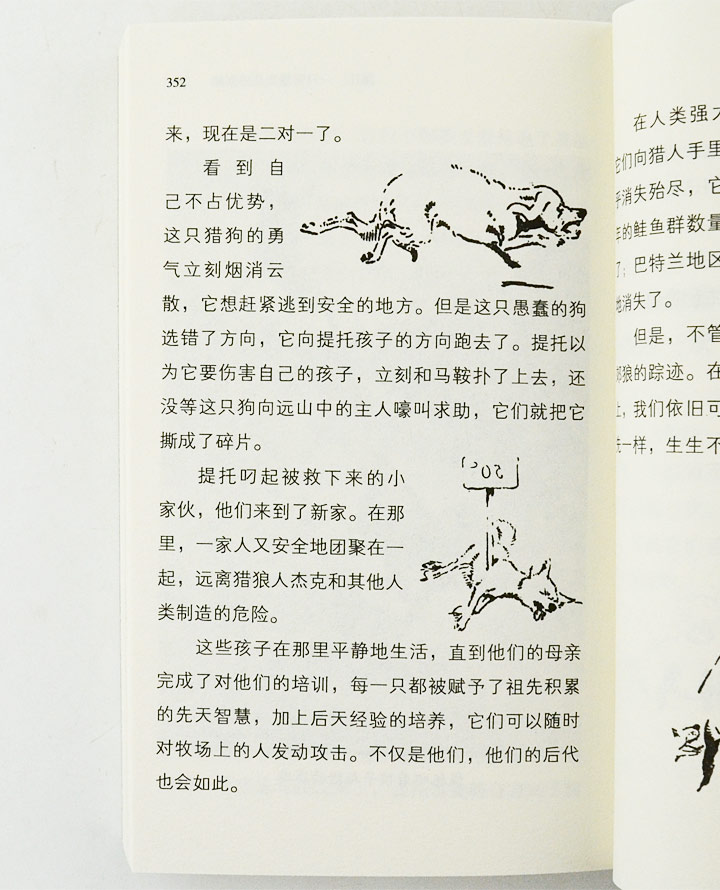 352
来，现在是二对一了。
看到自
己不占优势，
这只猎狗的勇
气立刻烟消云
散，它想赶紧逃到安全的地方。但是这只愚蠢的狗
选错了方向，它向提托孩子的方向跑去了。提托以
为它要伤害自己的孩子，立刻和马鞍扑了上去，还
没等这只狗向远山中的主人嚎叫求助，它们就把它
撕成了碎片。
提托叼起被救下来的小
家伙，他们来到了新家。在那
里，一家人又安全地团聚在一
起，远离猎狼人杰克和其他人
类制造的危险。
这些孩子在那里平静地生活，直到他们的母亲
完成了对他们的培训，每一只都被赋予了祖先积累
的先天智慧，加上后天经验的培养，它们可以随时
对牧场上的人发动攻击。不仅是他们，他们的后代
也会如此。
在人类强大
它们向猎人手里
乎消失殆尽，它
年的鲑鱼群数量
了；巴特兰地区
地消失了。
但是，不管
郊狼的踪迹。在
上，我们依旧可
一样，生生不